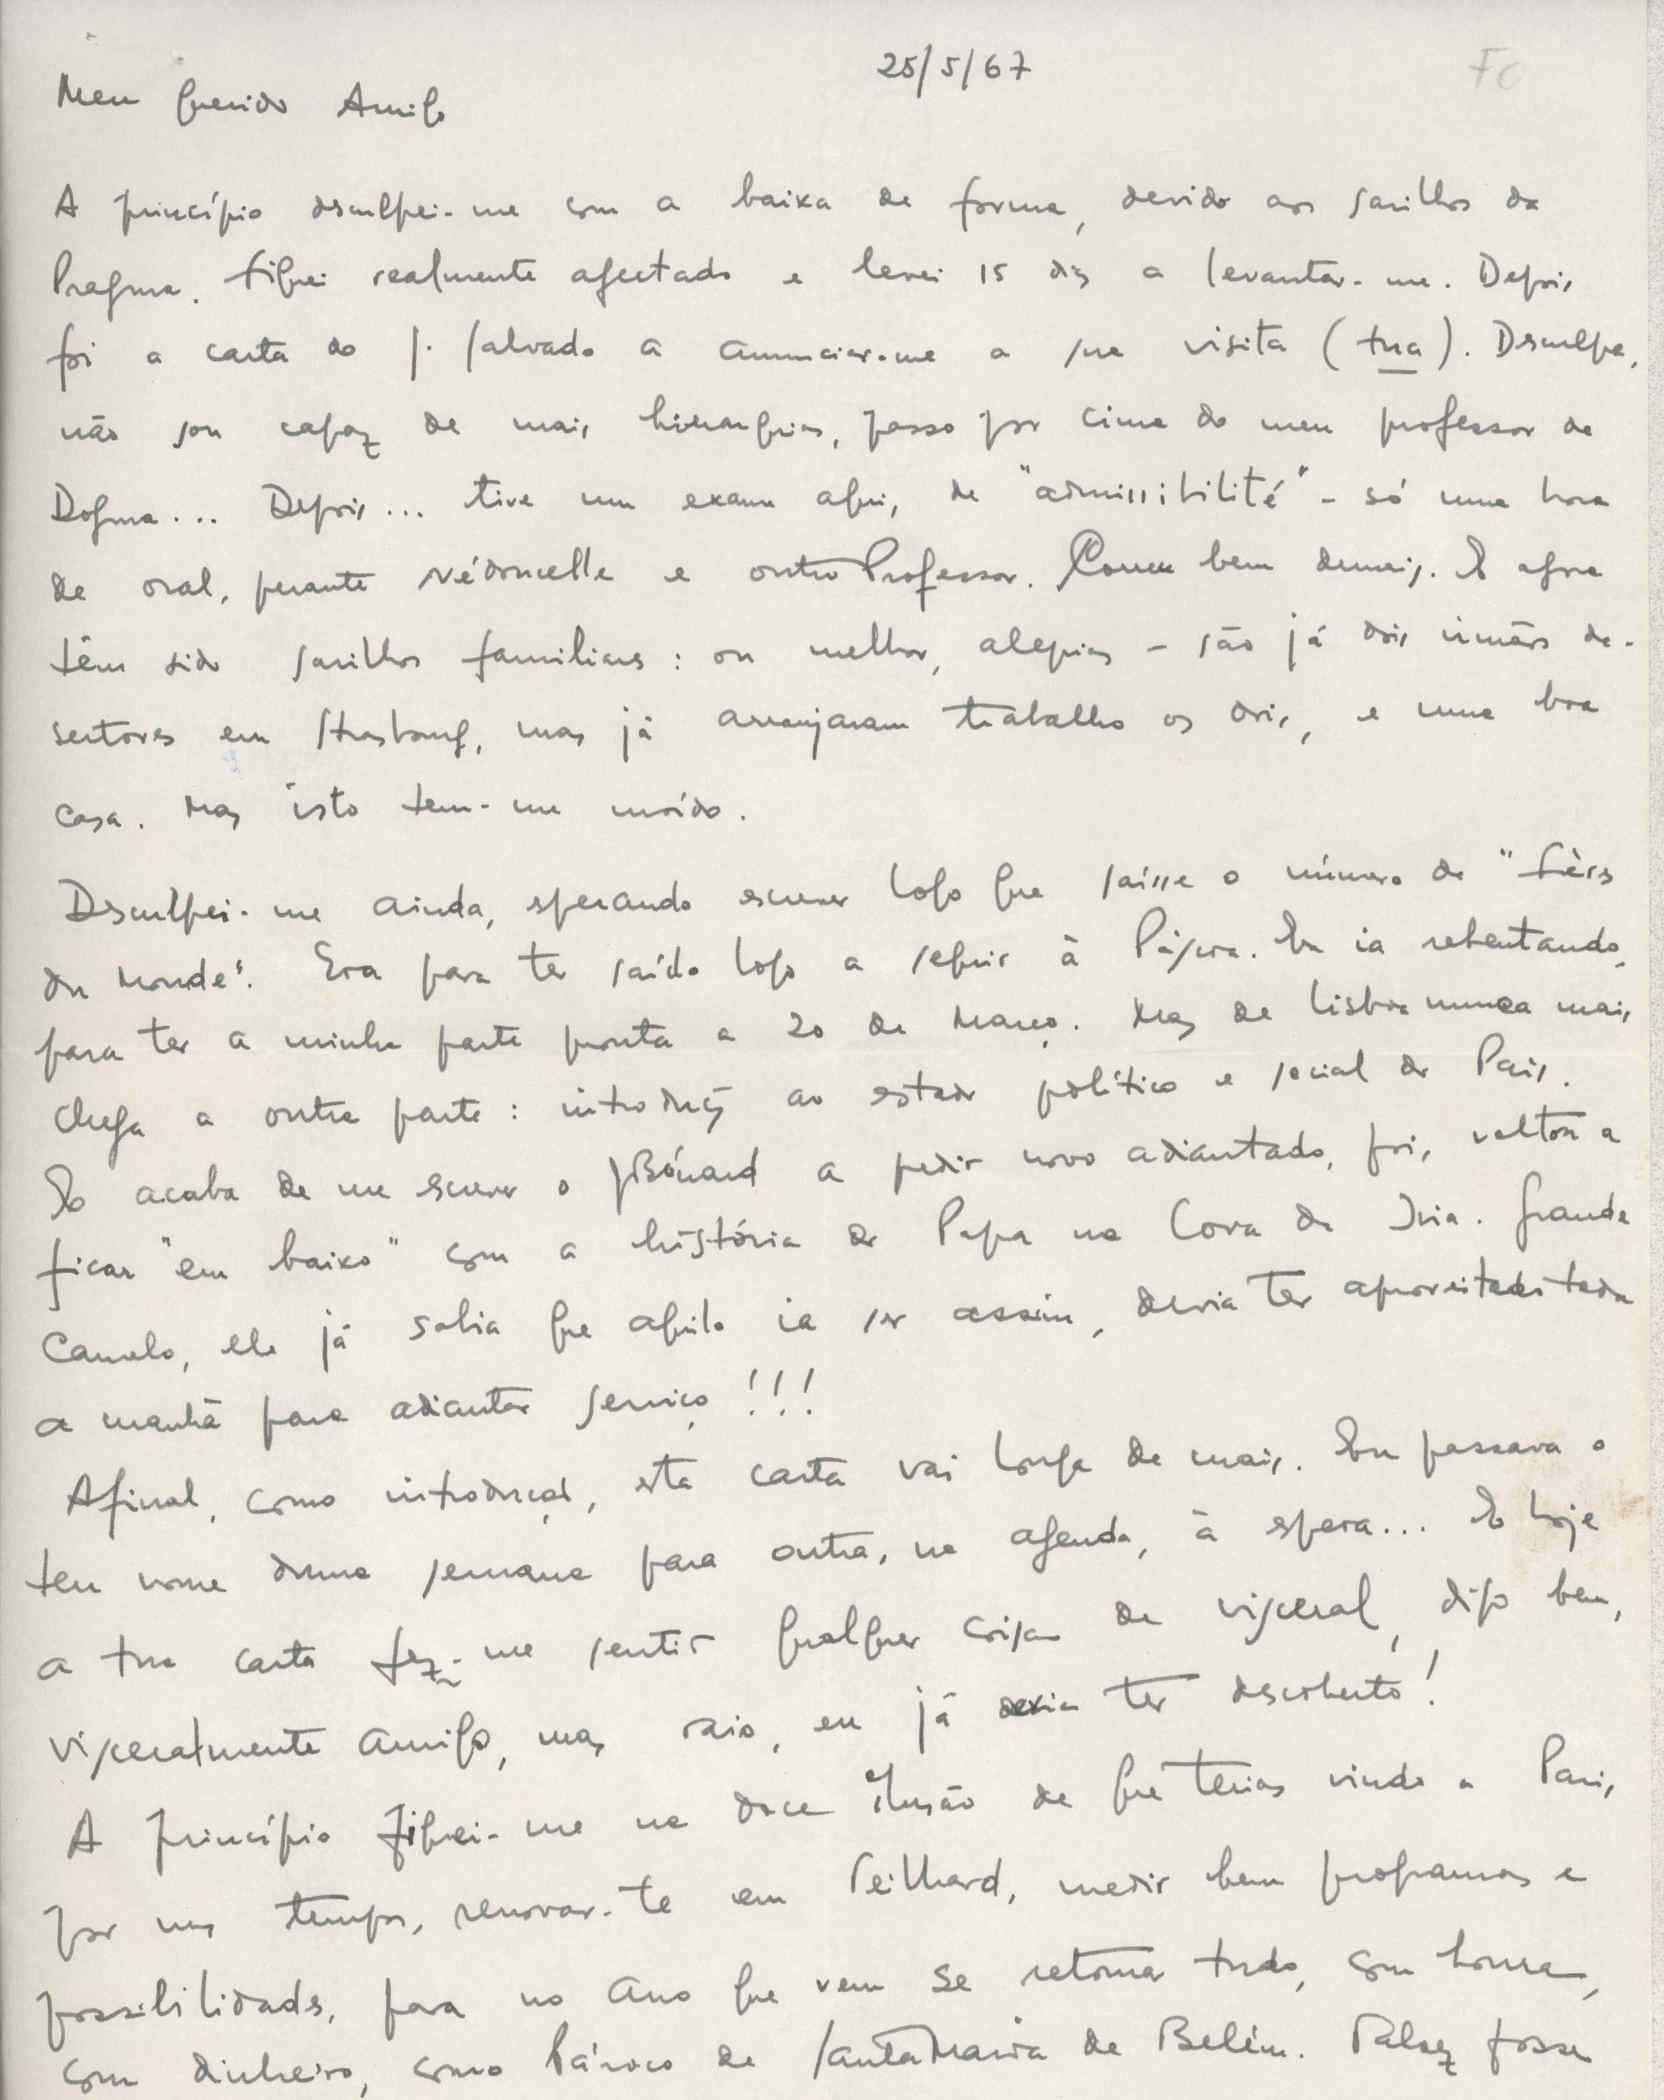 25/5/67
FC
Meu querido Amigo
A princípio desculpei-me com a baixa de forma, devido aos sarilhos da
Pragma. Fiquei realmente afectado e levei 15 dias a levantar-me. Depois
foi a carta do P. Salvado a anunciar-me a sua visita (tua). Desculpe,
não sou capaz de mais hierarquias, passo por cima do meu professor de
Dogma... Depois... tive um exame aqui, de "admissibilité" - só uma hora
de oral, perante Nédoncelle e outro Professor. Correu bem demais. E agora
têm sido sarilhos familiares: ou melhor, alegrias - são já dois irmãos de-
sertores em Strasbourg, mas já arranjaram trabalho os dois, e uma boa
casa. Mas isto tem-me moído.
Desculpei-me ainda, esperando escrever logo que saísse o número de "Frères
du Monde". Era para ter saído logo a seguir à Páscoa. Eu ia rebentando,
para ter a minha parte pronta a 20 de Março. Mas de Lisboa nunca mais
chega a outra parte: introdução ao estado político e social do País.
E acaba de me escrever o Bénard a pedir novo adiantado, pois, voltou a
ficar "em baixo" com a história do Papa na Cova da Iria. Grande
Camelo, ele já sabia que aquilo ia ser assim, devia ter aproveitado toda
a manhã para adiantar serviço!!!
Afinal, como introdução, esta carta vai longa de mais. Eu passava o
teu nome duma semana para outra, na agenda, à espera... E hoje
a tua carta fez-me sentir qualquer coisa de visceral, digo bem,
visceralmente amigo, mas raio, eu já devia ter descoberto!
A princípio fiquei-me na doce ilusão de que terias vindo a Paris
por uns tempos, renovar-te em Teilhard, medir bem programas e
possibilidades, para no ano que vem se retomar tudo, com honra,
com dinheiro, como Pároco de Santa Maria de Belém. Talvez fosse